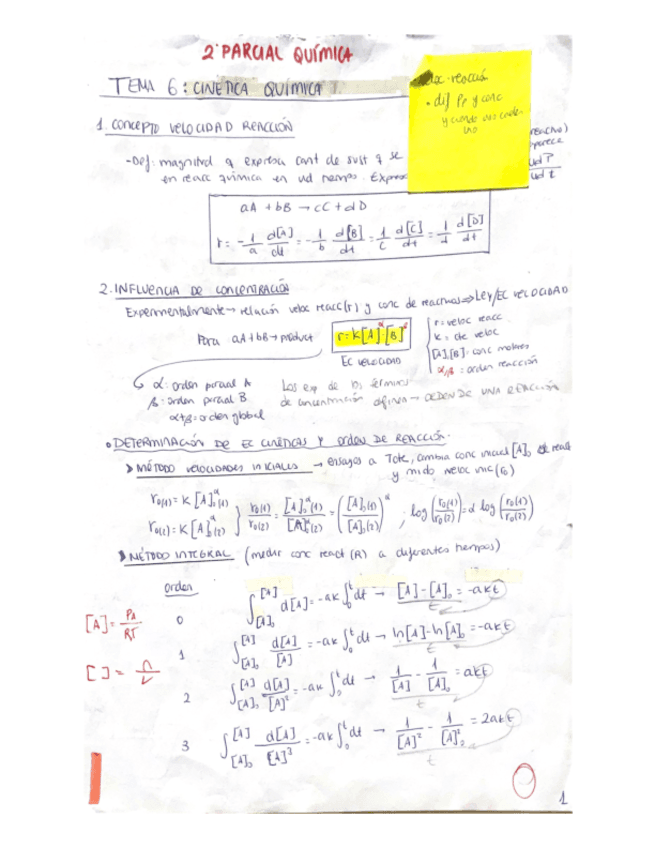 2º PARCIAL QUÍMICA
TEMA 6: CINÉTICA QUÍMICA
reacción
• dif Pp y conc
y cuando uso cada uno
1. CONCEPTO VELOCIDAD REACCIÓN
- Def: magnitud q expresa cant de sust q se
en reacc química en ud tiempo. Expresa
ud P / ud t
aA + bB → cC + dD
r = -1/a d[A]/dt = -1/b d[B]/dt = 1/c d[C]/dt = 1/d d[D]/dt
2. INFLUENCIA DE CONCENTRACIÓN
Experimentalmente → relación veloc reacc (r) y conc de reactivos ⇒ LEY/EC VELOCIDAD
Para aA + bB → product
r = K[A]^α·[B]^β
EC VELOCIDAD
r = veloc reacc.
K = cte veloc
[A],[B]: conc molares
α,β = orden reacción
α: orden parcial A
β: orden parcial B
α+β = orden global
Los exp de los términos
de concentración definen → ORDEN DE UNA REACCIÓN
• DETERMINACIÓN DE EC CINÉTICAS Y ORDEN DE REACCIÓN.
> MÉTODO VELOCIDADES INICIALES → ensayos a Tcte, cambia conc inicial [A]₀ de react
y mido veloc inic (r₀)
r₀(1) = K[A]₀^α(1)
r₀(2) = K[A]₀^α(2)
r₀(1)/r₀(2) = [A]₀^α(1)/[A]₀^α(2) = ([A]₀(1)/[A]₀(2))^α ; log(r₀(1)/r₀(2)) = α log(r₀(1)/r₀(2))
> MÉTODO INTEGRAL (medir conc react (R) a diferentes tiempos)
orden
[A] = PA/RT
[ ] = n/V
0 ∫[A]₀^[A] d[A] = -ak ∫₀^t dt → [A] - [A]₀ = -akt
t
1 ∫[A]₀^[A] d[A]/[A] = -ak ∫₀^t dt → ln[A] - ln[A]₀ = -akt
2 ∫[A]₀^[A] d[A]/[A]² = -ak ∫₀^t dt → 1/[A] - 1/[A]₀ = akt
t
3 ∫[A]₀^[A] d[A]/[A]³ = -ak ∫₀^t dt → 1/[A]² - 1/[A]²₀ = 2akt
t
1